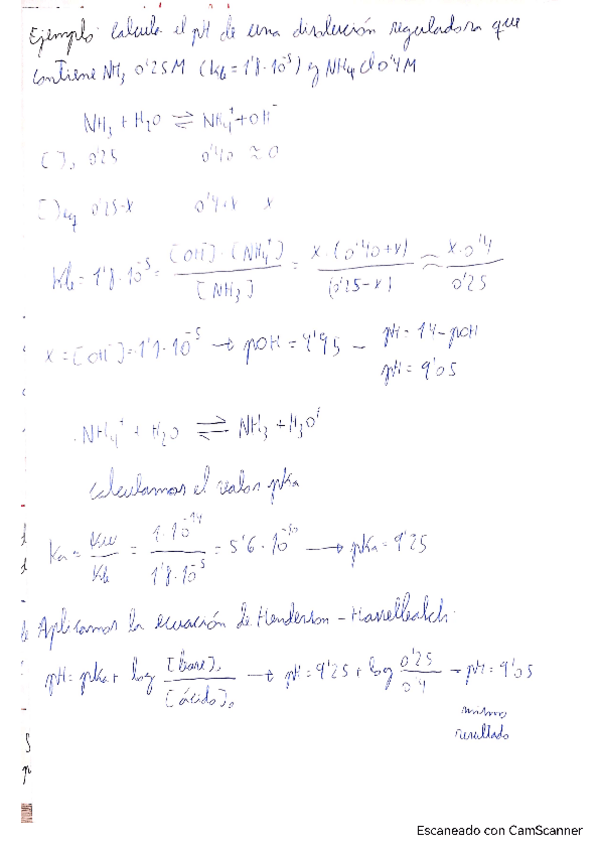 Ejemplo: Calcula el pH de una disolución reguladora que
contiene NH3 0'25M (kb = 1'8·10^-5) y NH4Cl 0'4M
NH3 + H2O ⇌ NH4+ + OH-
[ ]0 0'25 0'40 ≈ 0
[ ]eq 0'25-x 0'4+x x
Kb = 1'8·10^-5 = [OH-]·[NH4+] / [NH3] = x·(0'40+x) / (0'25-x) ≈ x·0'4 / 0'25
x = [OH-] = 1'1·10^-5 → pOH = 4'95 – pH = 14-pOH
pH = 9'05
NH4+ + H2O ⇌ NH3 + H3O+
Calculamos el valor pKa
Ka = Kw / Kb = 1·10^-14 / 1'8·10^-5 = 5'6·10^-10 → pKa = 9'25
Aplicamos la ecuación de Henderson-Hasselbalch.
pH = pKa + log [base]0 / [ácido]0 → pH = 9'25 + log 0'25 / 0'4 → pH = 9'05
mismo
resultado
Escaneado con CamScanner